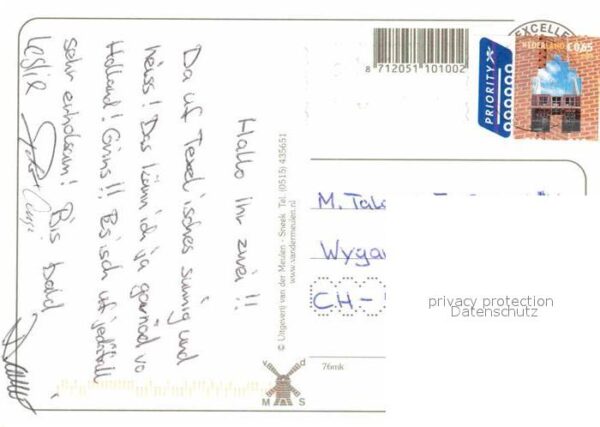 Hallo ihr zwei!!
Da uf Texel isches sunnig und
heiss! Das kann ich ja garnöd vo
Holland! Gims!! Es isch uf jedefall
sehr erholsam! Bis bald,
Leslie
© Uitgeverij van der Meulen - Sneek Tel. (0515) 435651
www.vandermeulen.nl
8 712051 101002
PRIORITY
NEDERLAND € 0,65
EXCELLE
M.
Wyga
CH -
76mk
v d
M S
privacy protection
Datenschutz